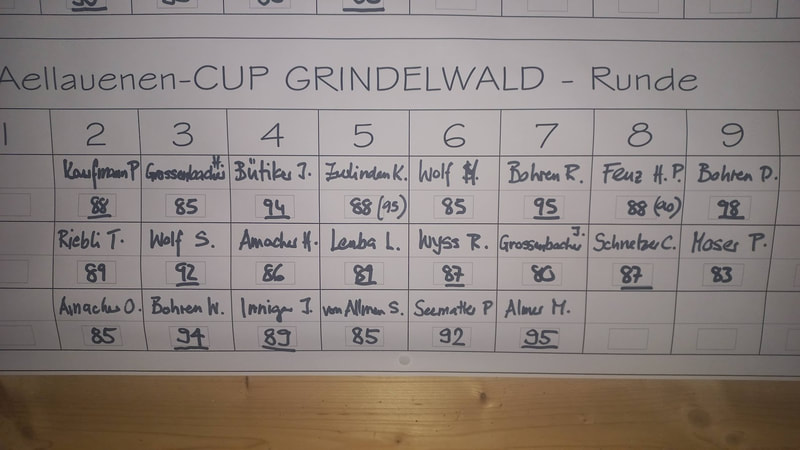 Aellauenen-CUP GRINDELWALD - Runde
2 3 4 5 6 7 8 9
Kaufmann P. Grossenbacher H. Bütiker J. Zurlinden K. Wolf H. Bohren R. Fenz H.P. Bohren D.
88 85 94 88 (95) 85 95 88 (90) 98
Riebli T. Wolf S. Amacher H. Lemba L. Wyss R. Grossenbacher J. Schnetzer C. Moser P.
89 92 86 81 87 80 87 83
Amacher O. Bohren W. Inniger J. von Allmen S. Seematter P Almer M.
85 94 89 85 92 95